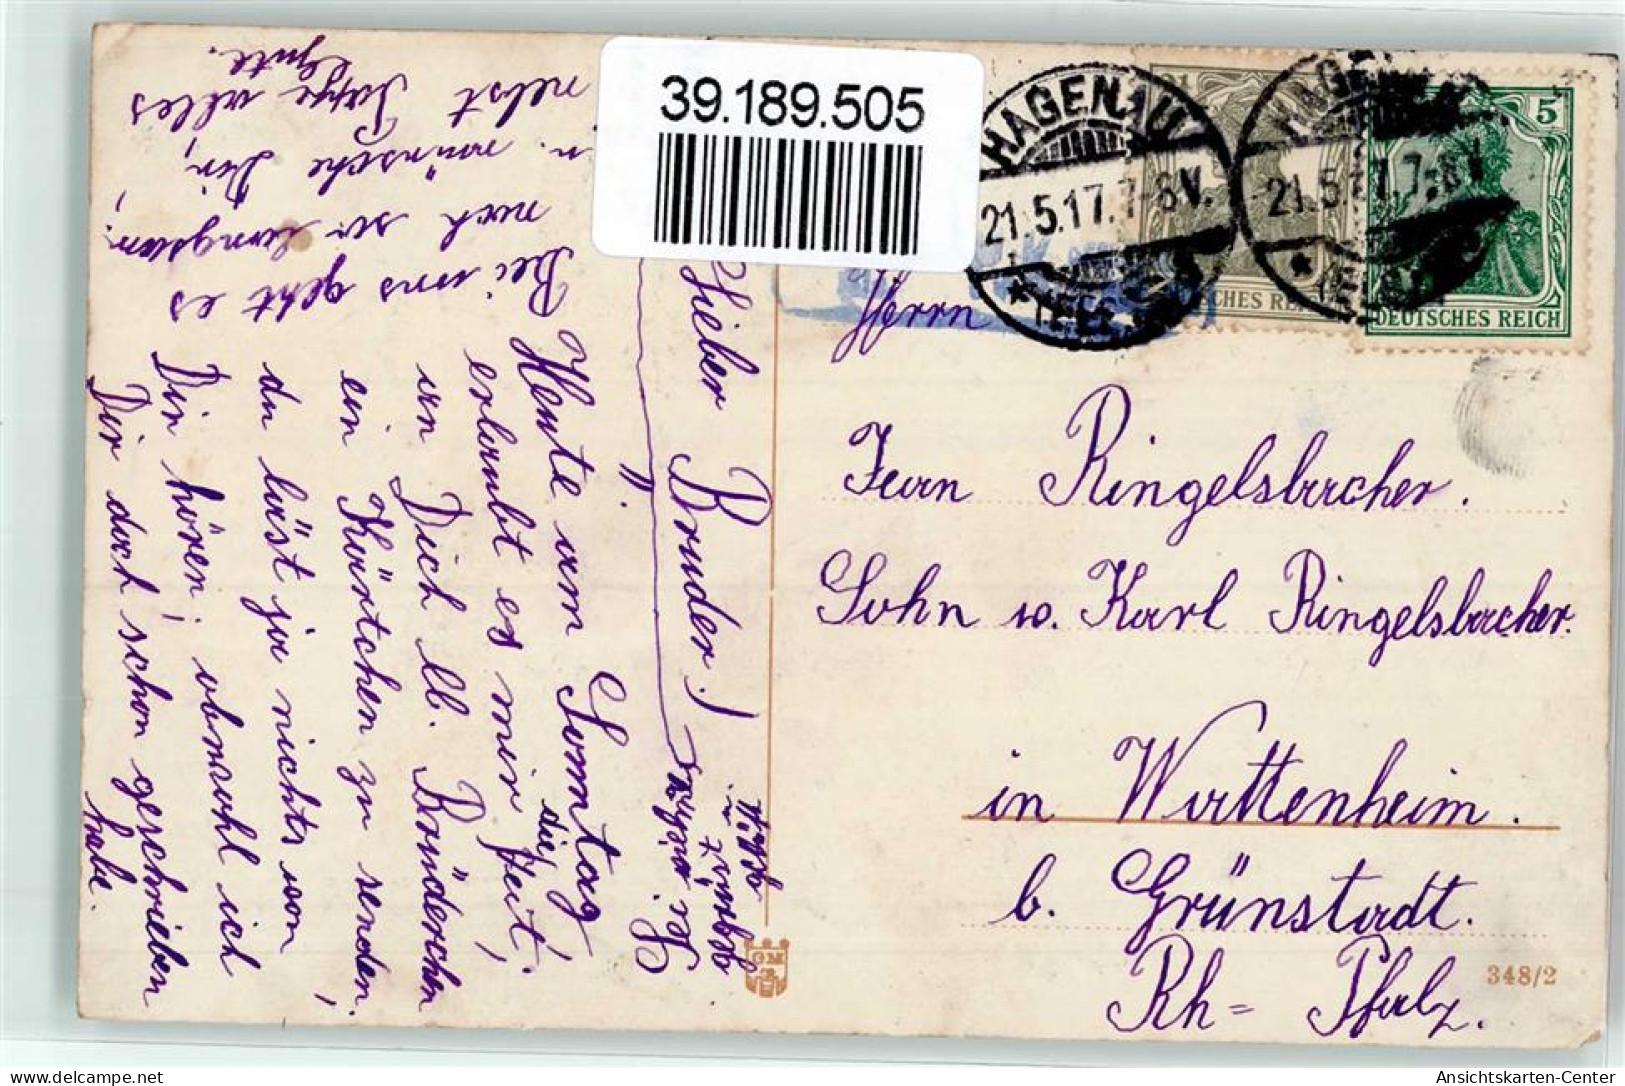 39.189.505
HAGENAU
21.5.17.7-8V.
HAGENAU
21.5.17.7-8V
2½
5
DEUTSCHES REICH
DEUTSCHES REICH
Herrn
Jean Ringelsbacher.
Sohn v. Karl Ringelsbacher.
in Wattenheim.
b. Grünstadt.
Rh= Pfalz.
348/2
Lieber Bruder!
Heute am Sonntag
erlaubt es mir die Zeit,
an Dich lb. Brüderchen
ein Kärtchen zu senden.
du läst ja nichts von
Dir hören, obwohl ich
Dir doch schon geschrieben
habe.
Bei uns geht es
noch so langsam,
u. wünsche Dir,
nebst Pappe alles
Gute.
Gruß
GM
Ansichtskarten-Center
delcampe.net